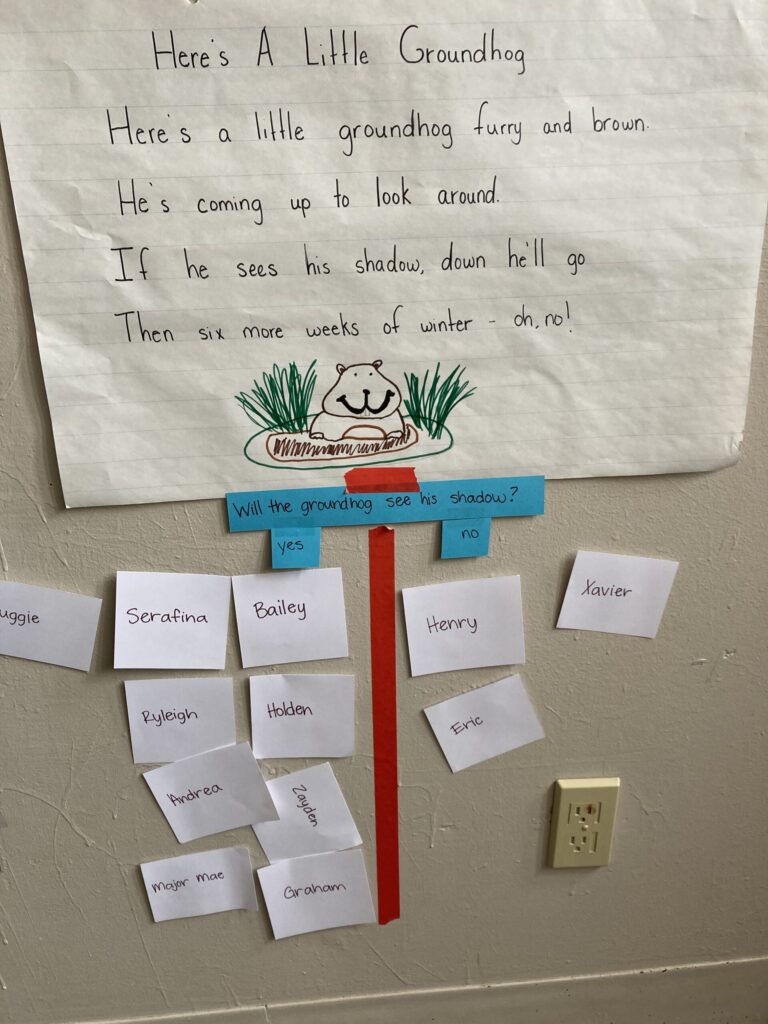 Here's A Little Groundhog
Here's a little groundhog furry and brown.
He's coming up to look around.
If he sees his shadow, down he'll go
Then six more weeks of winter - oh, no!
Will the groundhog see his shadow?
yes
no
uggie
Serafina
Bailey
Henry
Xavier
Ryleigh
Holden
Eric
Andrea
Zayden
Major Mae
Graham